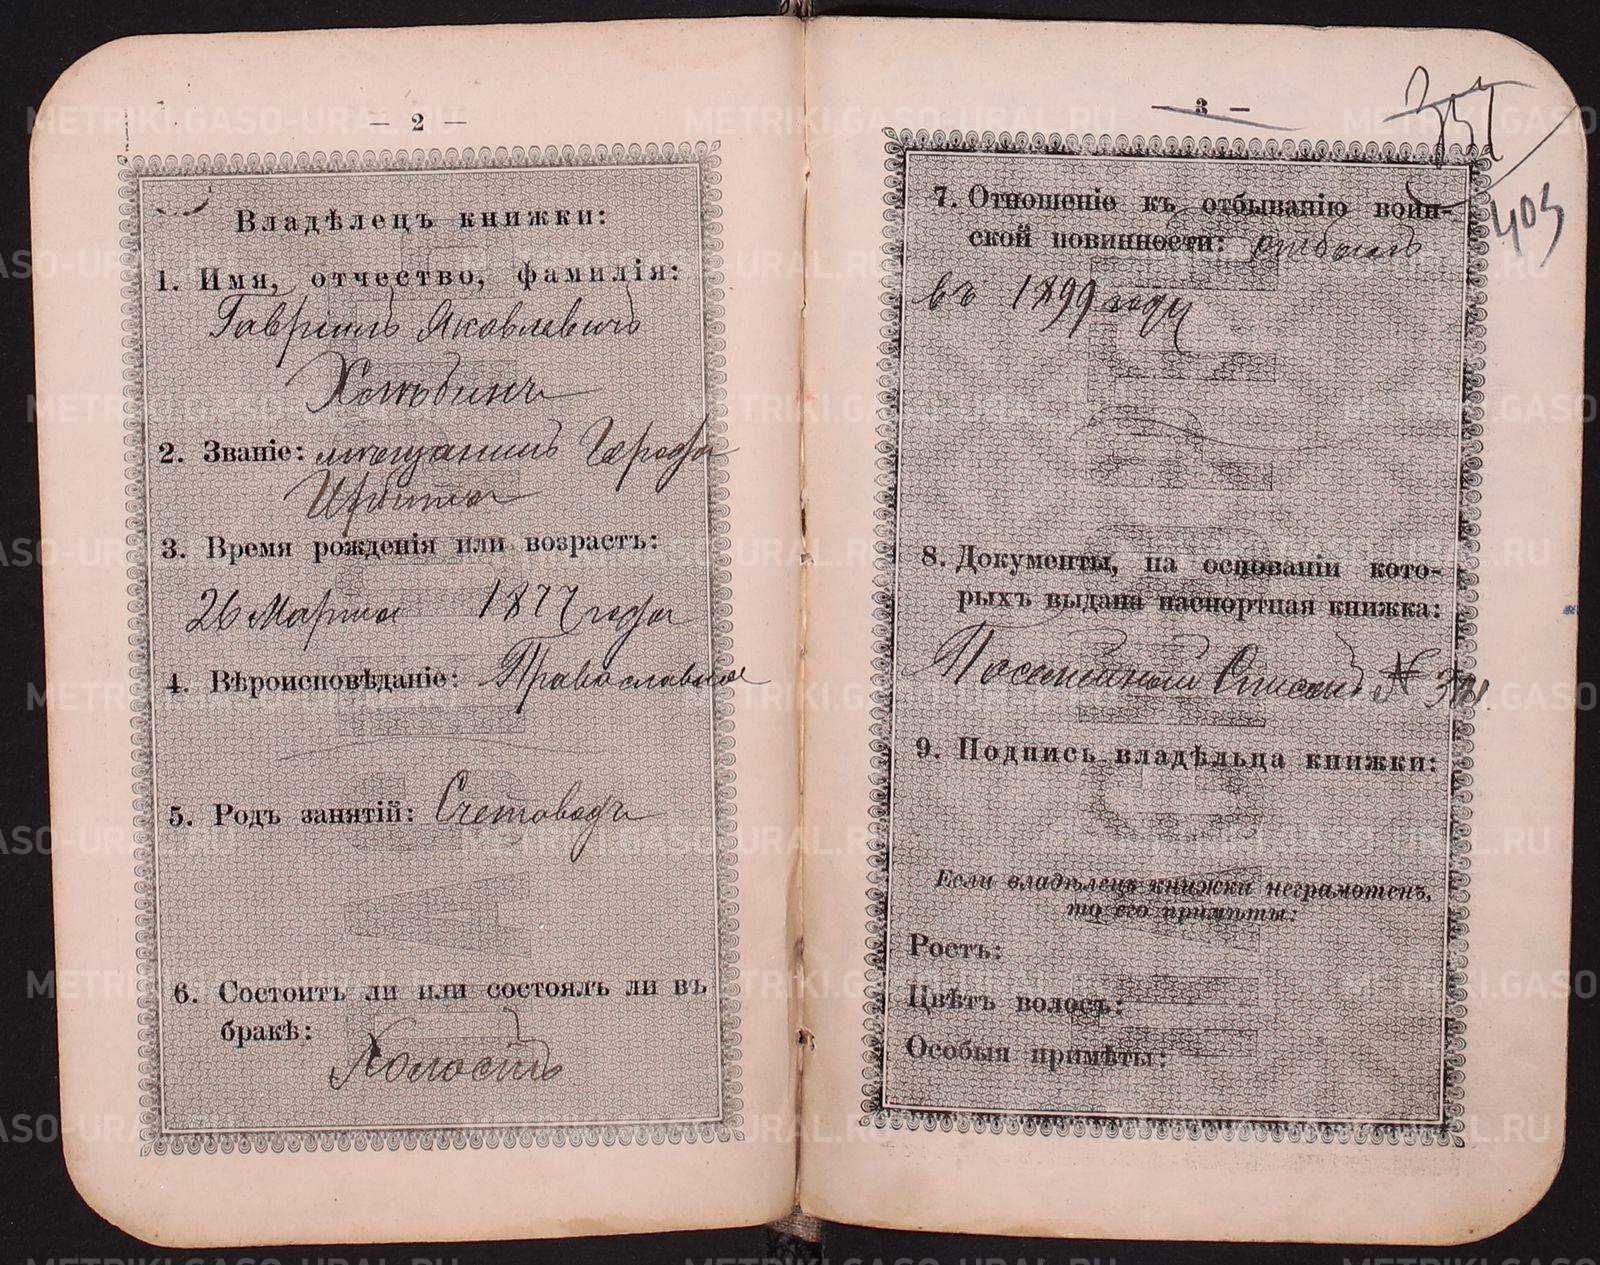 — 2 —
Владѣлецъ книжки:
1. Имя, отчество, фамилія:
Гавріилъ Яковлевичъ
2. Званіе: мѣщанинъ Города
Ирбита
3. Время рожденія или возрастъ:
26 Марта 1877 года
4. Вѣроисповѣданіе: Православное
5. Родъ занятій: Счетоводъ
6. Состоитъ ли или состоялъ ли въ
бракѣ:
Холостъ
— 3 —
357
403
7. Отношеніе къ отбыванію воин-
ской повинности: отбылъ
въ 1899 году
8. Документы, на основаніи кото-
рыхъ выдана паспортная книжка:
Посемейный Списокъ №
9. Подпись владѣльца книжки:
Если владѣлецъ книжки неграмотенъ,
то его примѣты:
Ростъ:
Цвѣтъ волосъ:
Особыя примѣты:
METRIKI.GASO-URAL.RU